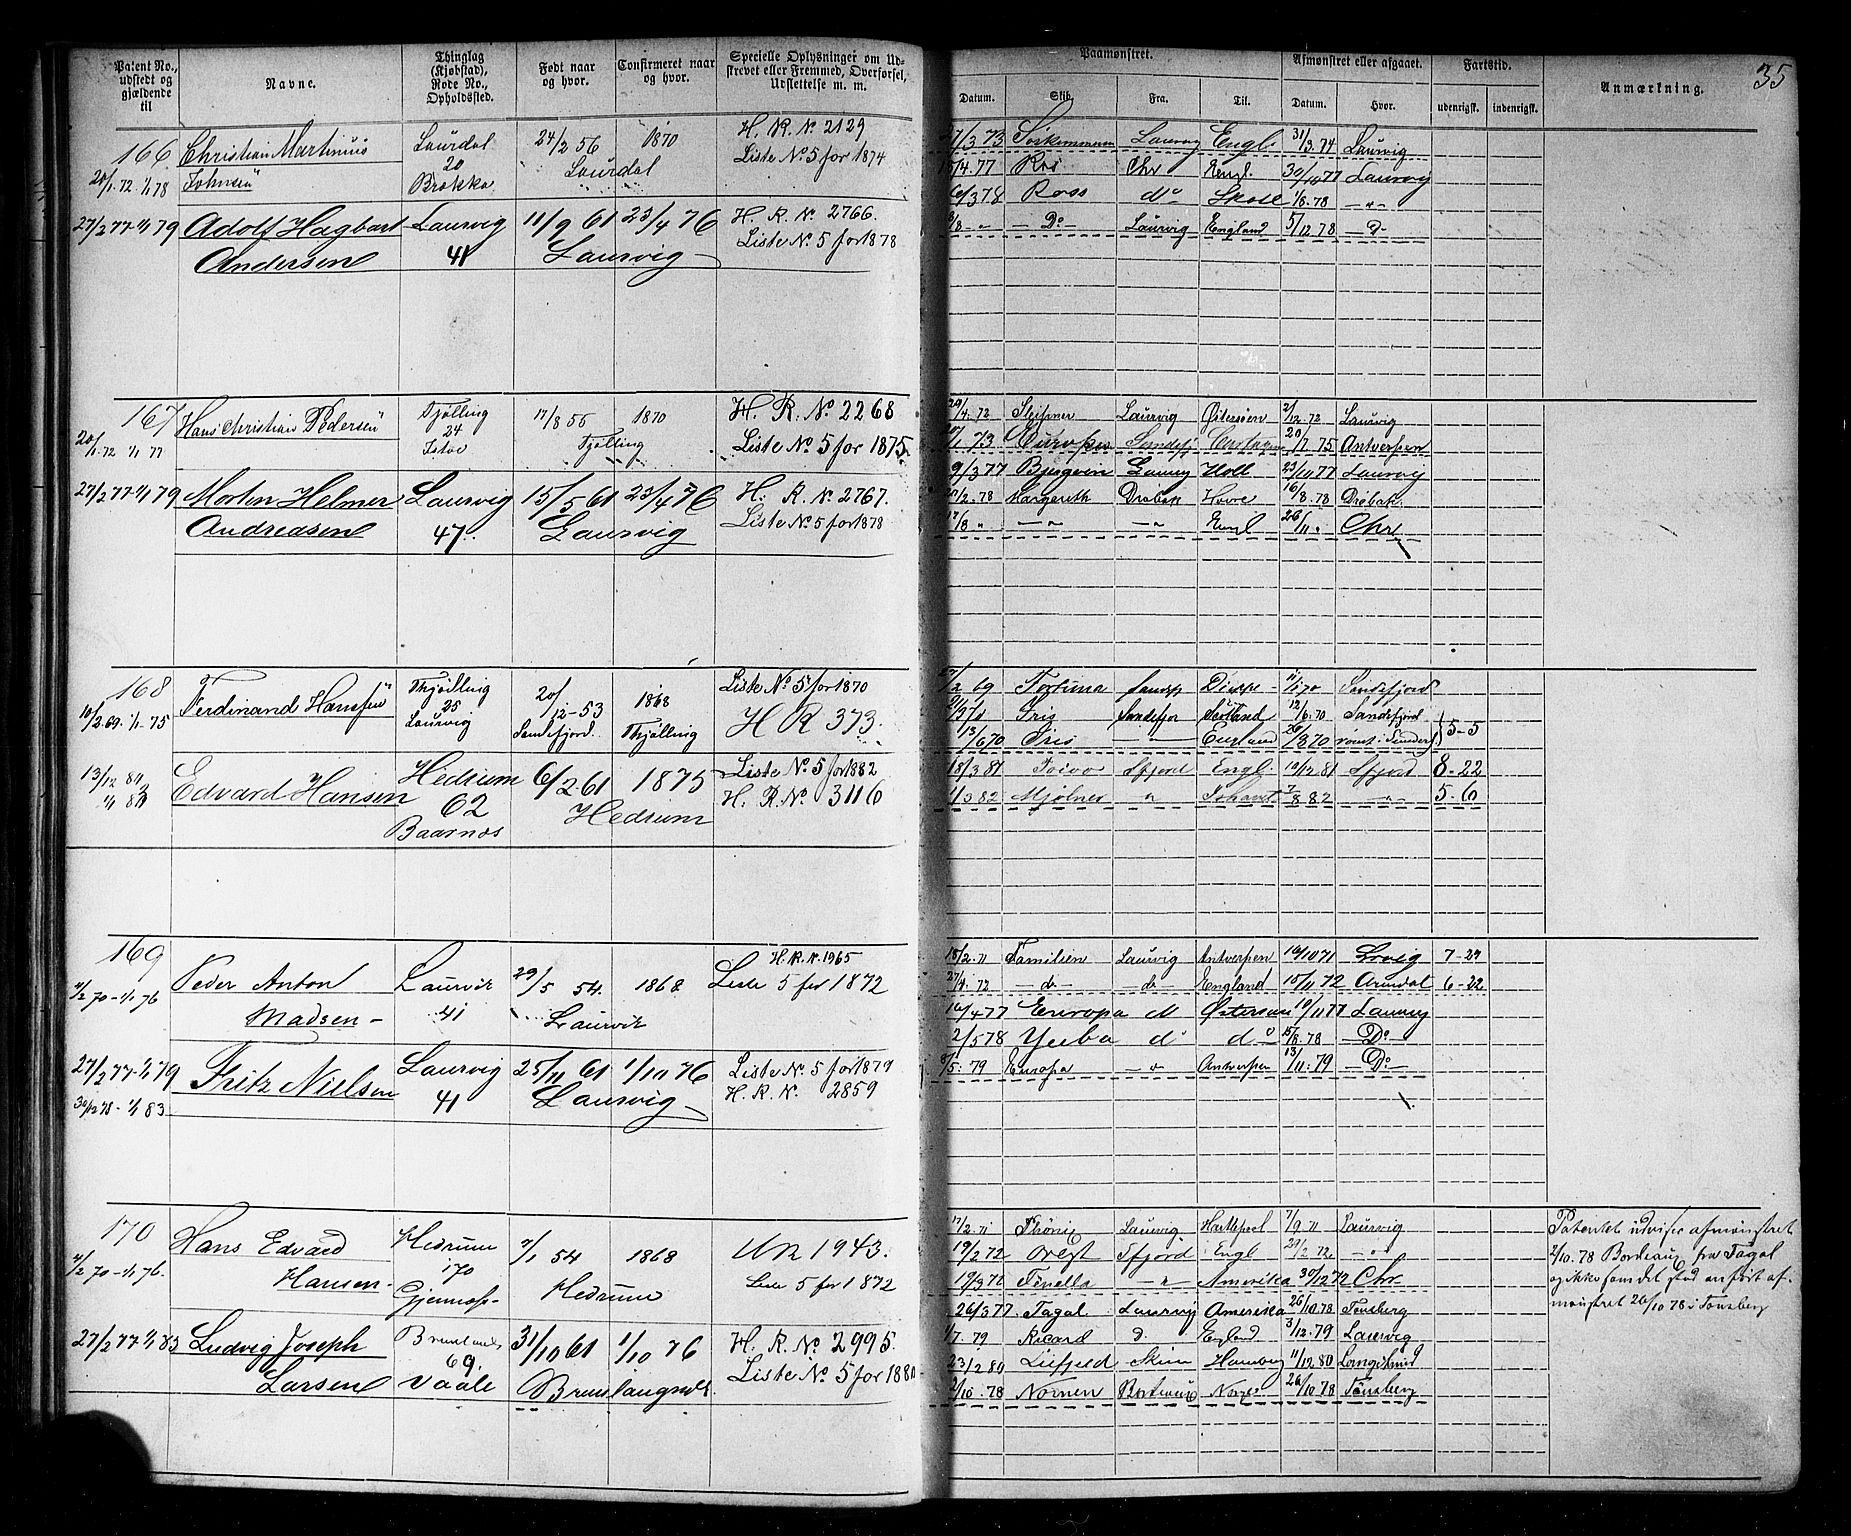 35
Patent No., udstedt og gjældende til
Navne.
Thinglag (Kjøbstad), Rode No., Opholdssted.
Født naar og hvor.
Confirmeret naar og hvor.
Specielle Oplysninger om Udskrevet eller Fremmed, Overførsel, Udslettelse m. m.
Paamønstret.
Afmønstret eller afgaaet.
Fartstid.
Anmærkning.
Datum. Skib. Fra. Til. Datum. Hvor. udenrigsk. indenrigsk.
166 Christian Martinius Laurdal 24/2 56 1870 H. R. No 2129
20 Liste No 5 for 1874
20/1.72 1/1 78 Johnsen Brekke Laurdal
27/3 73 Laurvig Engl. 31/3.74 Laurvig
15/4.77 Chr Engl. 30/10 77 Laurvig
6/3 78 Ross do 1/8.78 —"—
27/2 77-1/1 79 Adolf Hagbart Laurvig 11/9 61 23/4 76 H. R. No 2766.
Andersen 41 Laurvig Liste No 5 for 1878
3/8 - " — Do - Laurvig England 5/12 78 — D -
167 Hans Christian Pedersen Tjølling 17/8 55 1870 H. R. No 2268
24
20/1.72 1/1 77 Istre Tjølling Liste No 5 for 1875
29/4.72 Sleipner Laurvig Østersøen 2/12.72 Laurvig
73 Europa Sandefj 20/7.75 Antverpen
9/3 77 Bjørgvin Laurvig Holl 23/10 77 Laurvig
27/2 77-1/1 79 Morten Helmer Laurvig 15/5 61 23/4 76 H. R. No 2767.
Andreasen 47 Laurvig Liste No 5 for 1878
2.78 Margareth Drøbak 16/8.78 Drøbak
17/8 " — " — " Engl 26/11 " Chr
168 Ferdinand Hanssen Thjølling 20/12-53 1868 Liste No 5 for 1870
25
10/2.69. 1/1.75 Laurvig Sandefjord Thjølling H R 373.
2 69 Fortuna Sandefj 11/1 70 Sandefjord
Iris Sandefjor Scotland 12/6.70 Sandefjord
13/6 70 Iris — England 26/8 70 rømt i Sunder 5-5
13/12 81 1/1 83 Edvard Hansen Hedrum 6/2 61 1875 Liste No 5 for 1882
62 H. R. No 3116
Baarnes Hedrum
18/3 81 Toivo Sfjord Engl. 19/12 81 Sfjord 8-22
1/3 82 Mjølner " 7/8 82 —"— 5-6
169 Peder Anton Laurvik 29/5 54. 1868. H. R. N. 1965
Liste 5 for 1872
2 70-1/1 76 Madsen - 41 Laurvik
15/2.71 Familien Laurvig Antverpen 16/10 71 Lrvig 7-27
27/4.72 — do — — do — England 15/11 72 Arendal 6-22
16/4 77 Europa Østersøen 19/11 77 Laurvig
2/5 78 Yrsa do do 15/8.78 Do
27/2 77-1/1 79 Fritz Nielsen Laurvig 25/11 61 1/10 76 Liste No 5 for 1879
30/12 78-1/1 83. 41 Laurvig H. R. N. 2859
5.79 Europa Antverpen 13/11.79 — Do —
170 Hans Edvard Hedrum 7/1 54 1868 HR 1943.
170
2 70-1/1 76. Hansen - Hedrum Liste 5 for 1872
17/2.71 Phønix Laurvig Hartlepool 7/9.71 Laurvig
19/2 72 Sfjord Engl 29/2 72 —"—
19/3 72 Amerika 30/12 72 Chr.
26/3 77. Tagal Laurvig Amerika 26/10.78 Tønsberg
27/2 77-1/1 83 Ludvig Joseph Brunlanes 31/10 61 1/10 76 H. R. No 2995.
69.
Larsen Vaale Brunlangnæs Liste No 5 for 1880
7.79 Ricard England 3/12.79 Laurvig
23/2 80 Liefjeld Skien Hamburg 11/12.80 Langesund
2/10.78 Nornen Bordeaux Norge 26/10.78 Tønsberg
Patentet udviser afmønstret
2/10.78 Bordeaux fra Tagal
og ikke som det stod an ført af-
mønstret 26/10 78 i Tønsberg